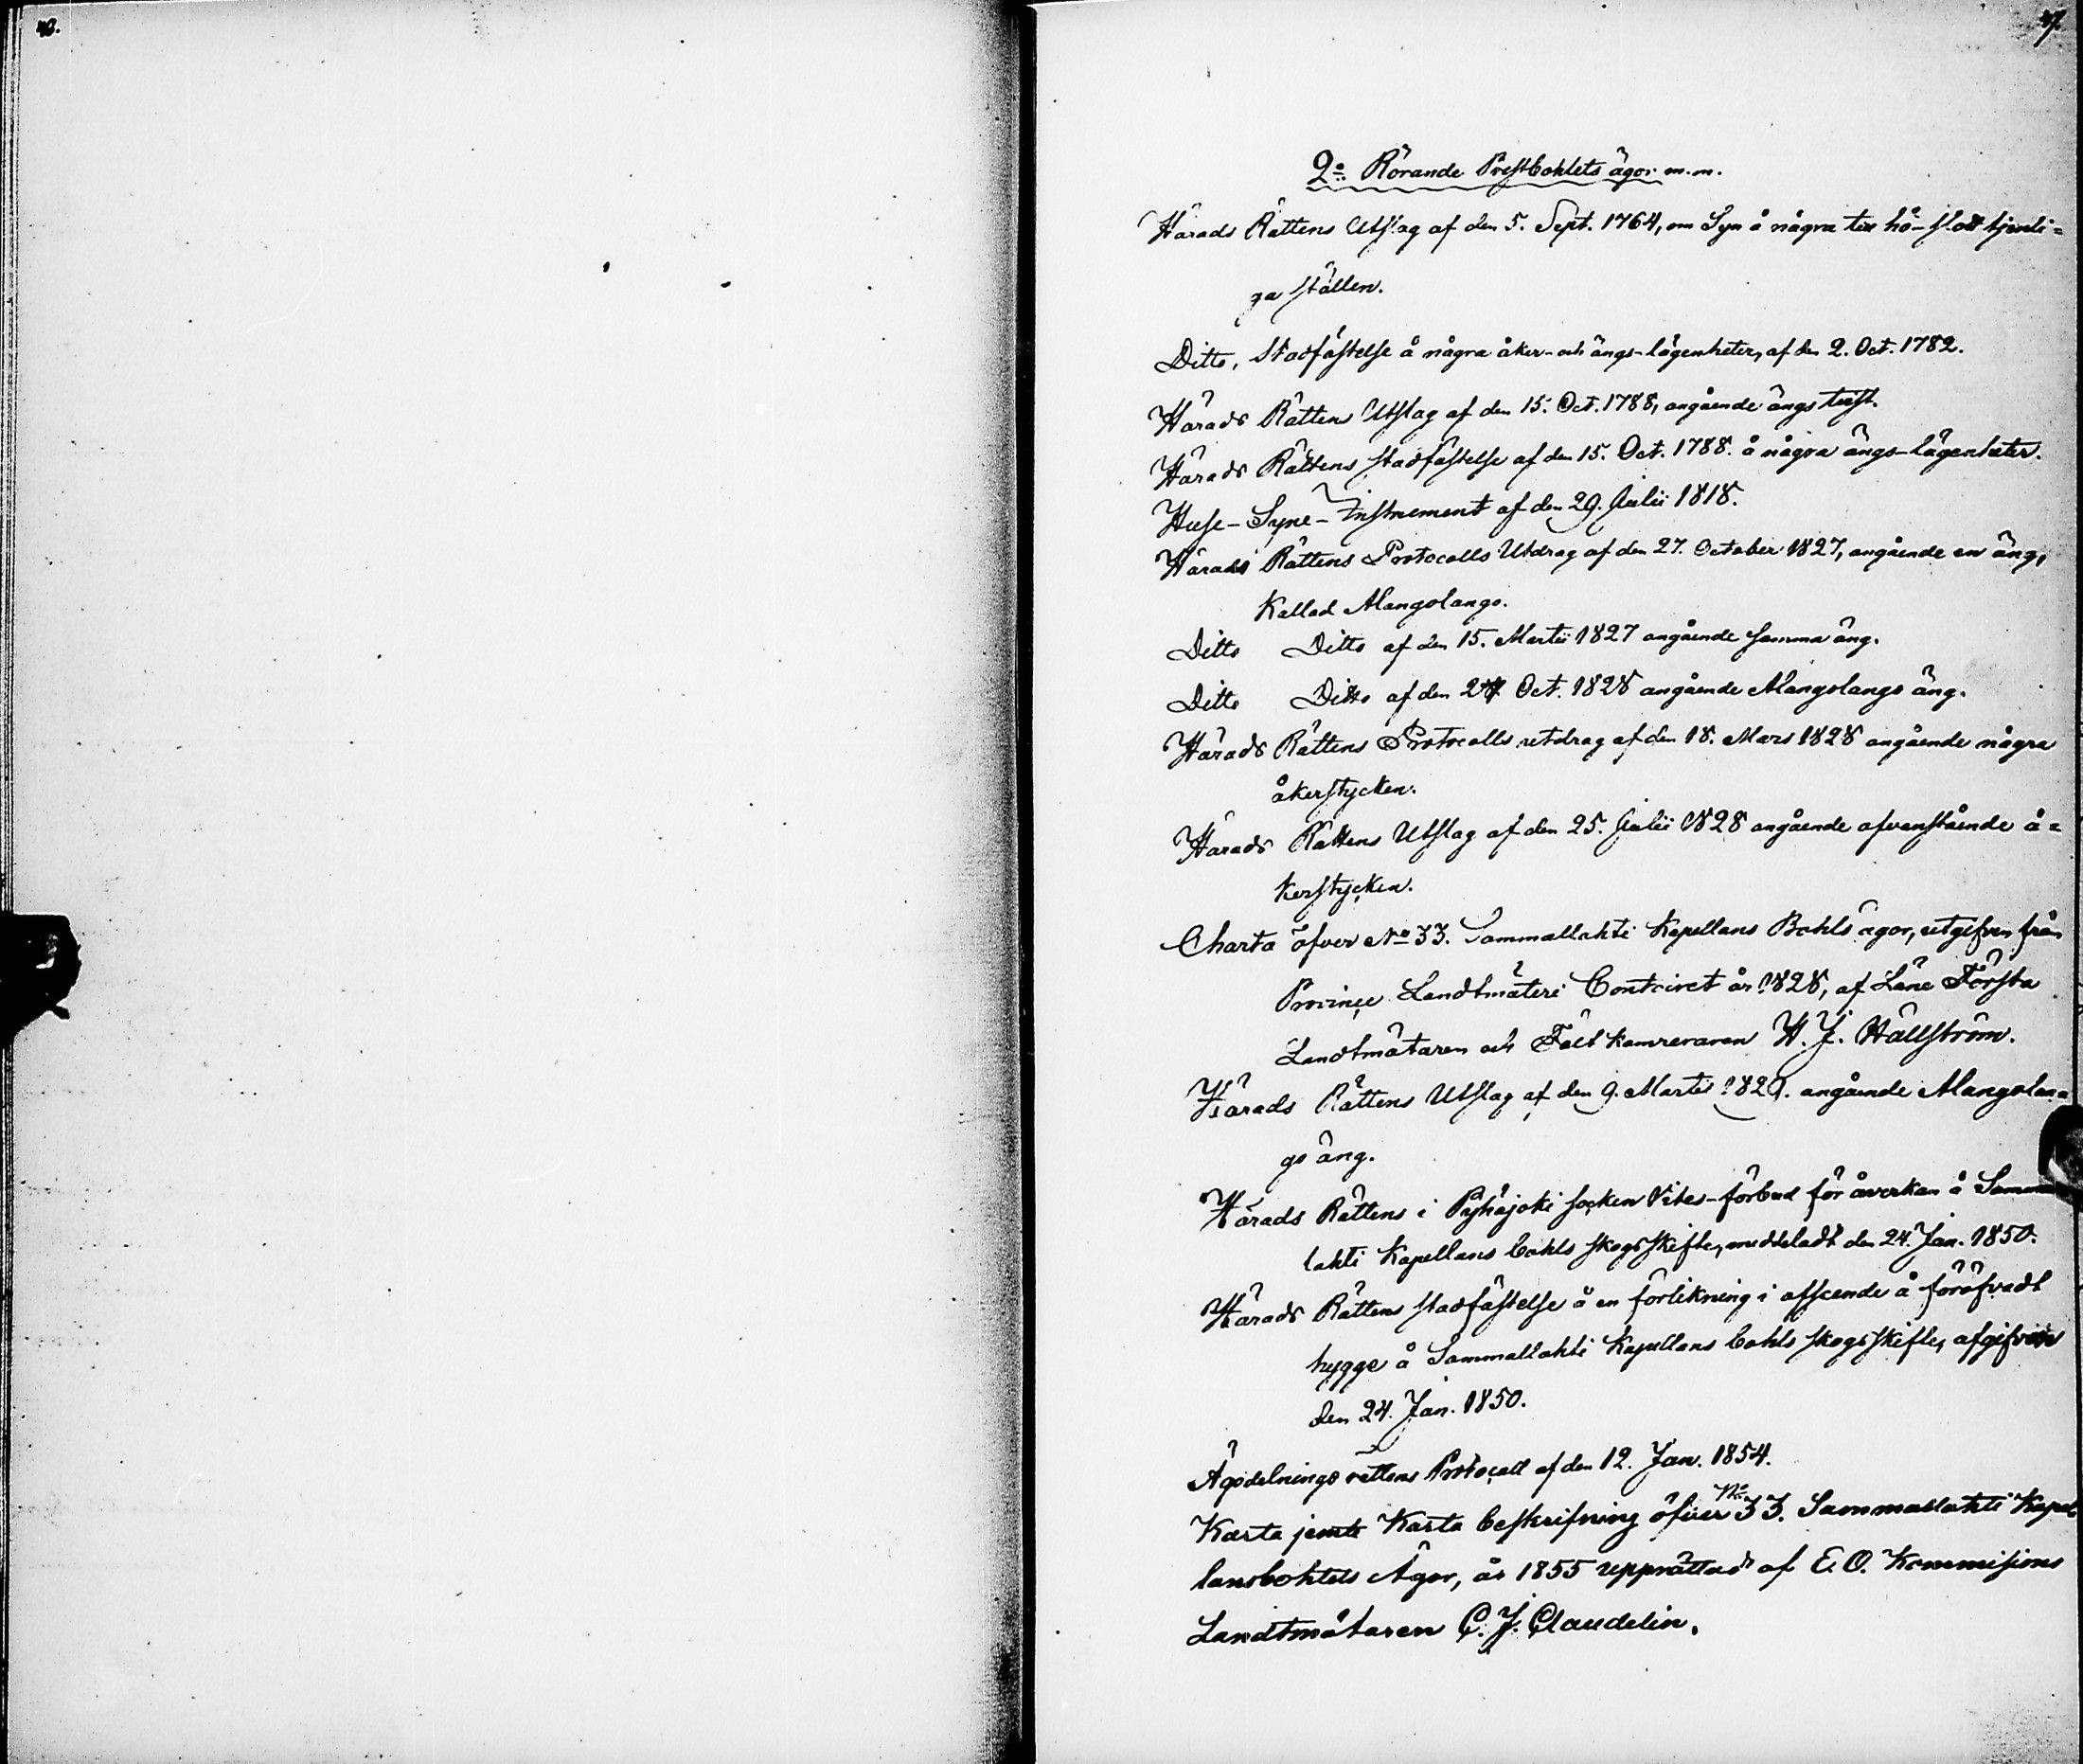 47
2:o Rörande Prestbohlets ägor m.m.
Härads Rättens Utslag af den 5. Sept. 1764, om Syn å några till hö-slott tjenli=
ga ställen.
Ditto, Stadfästelse å några åker- och ängs-lägenheter, af den 2. Oct. 1782.
Härads Rättens Utslag af den 15. Oct. 1788, angående ängs tvist.
Härads Rättens stadfästelse af den 15. Oct. 1788. å några ängs-lägenheter.
Huse-Syne-Instrument af den 29. Julii 1818.
Härads Rättens Protocolls Utdrag af den 27. October 1827, angående en äng,
Kallad Alangolango.
Ditto Ditto af den 15. Martii 1827 angående samma äng.
Ditto Ditto af den Oct. 1828 angående Alangolango äng.
Härads Rättens Protocolls utdrag af den 18. Mars 1828 angående några
åkerstycken.
Härads Rättens Utslag af den 25. Julii 1828 angående ofvanstående å=
kerstycken.
Charta öfver No 33. Sammallahti Kapellans Bohls ägor, utgifven från
Province Landtmäteri Contoiret år 1828, af Läne Första
Landtmätaren och Fält kamreraren H. J. Hällström.
Härads Rättens Utslag af den 9. Martii 1829. angående Alangolan=
go äng.
Härads Rättens i Pyhäjoki socken Vites-förbud för åverkan å Samma
lahti Kapellans bohls skogsskifte, meddeladt den 24. Jan. 1850.
Härads Rättens stadfästelse å en förlikning i afseende å föröfvadt
hygge å Sammallahti Kapellans bohls skogsskifte, afgifven
den 24. Jan. 1850.
Ägodelnings rättens Protocoll af den 12. Jan. 1854.
Karta jemte Karta beskrifning öfver No 33. Sammallahti Kapel
lansbohlets Ägor, år 1855 upprättad af E. O. Kommissions
Landtmätaren C. J. Claudelin.